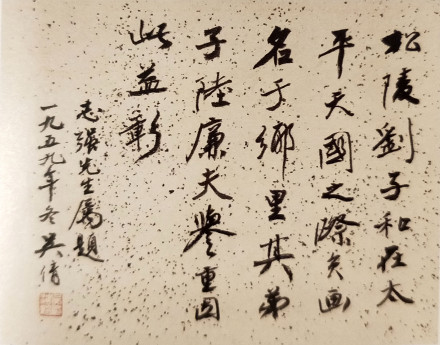 松陵劉子和在太
平天國之際以画
名于鄉里其弟
子陸廉夫譽重固
此益彰
志強先生屬題
一九五九年冬吳倩